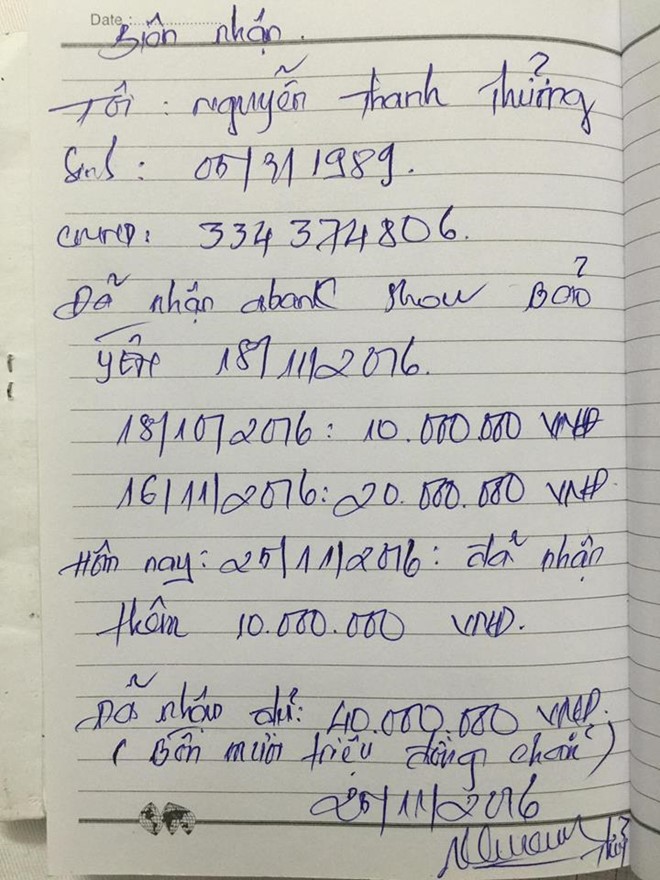 Date :
Biên nhận.
Tôi : Nguyễn Thanh Thưởng
Sinh : 05/3/1989.
CMND: 334 374806.
Đã nhận abank show Bảo
Yên 18/11/2016.
18/10/2016: 10.000.000 VNĐ
16/11/2016: 20.000.000 VNĐ.
Hôm nay: 25/11/2016: đã nhận
thêm 10.000.000 VNĐ.
Đã nhận đủ: 40.000.000 VNĐ.
( Bốn mươi triệu đồng chẵn )
25/11/2016